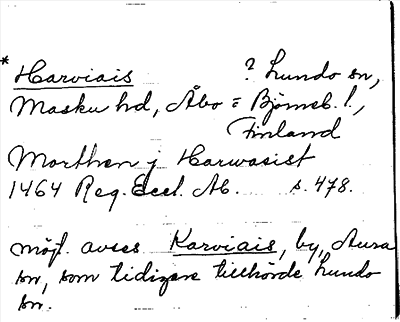 * Harviais ? Lundo sn,
Masku hd, Åbo = Björneb. l.,
Finland
Morthen j Harwasist
1464 Reg. Eccl. Ab. s. 478.
möjl. avses Karviais, by, Aura
sn, som tidigare tillhörde Lundo
sn.